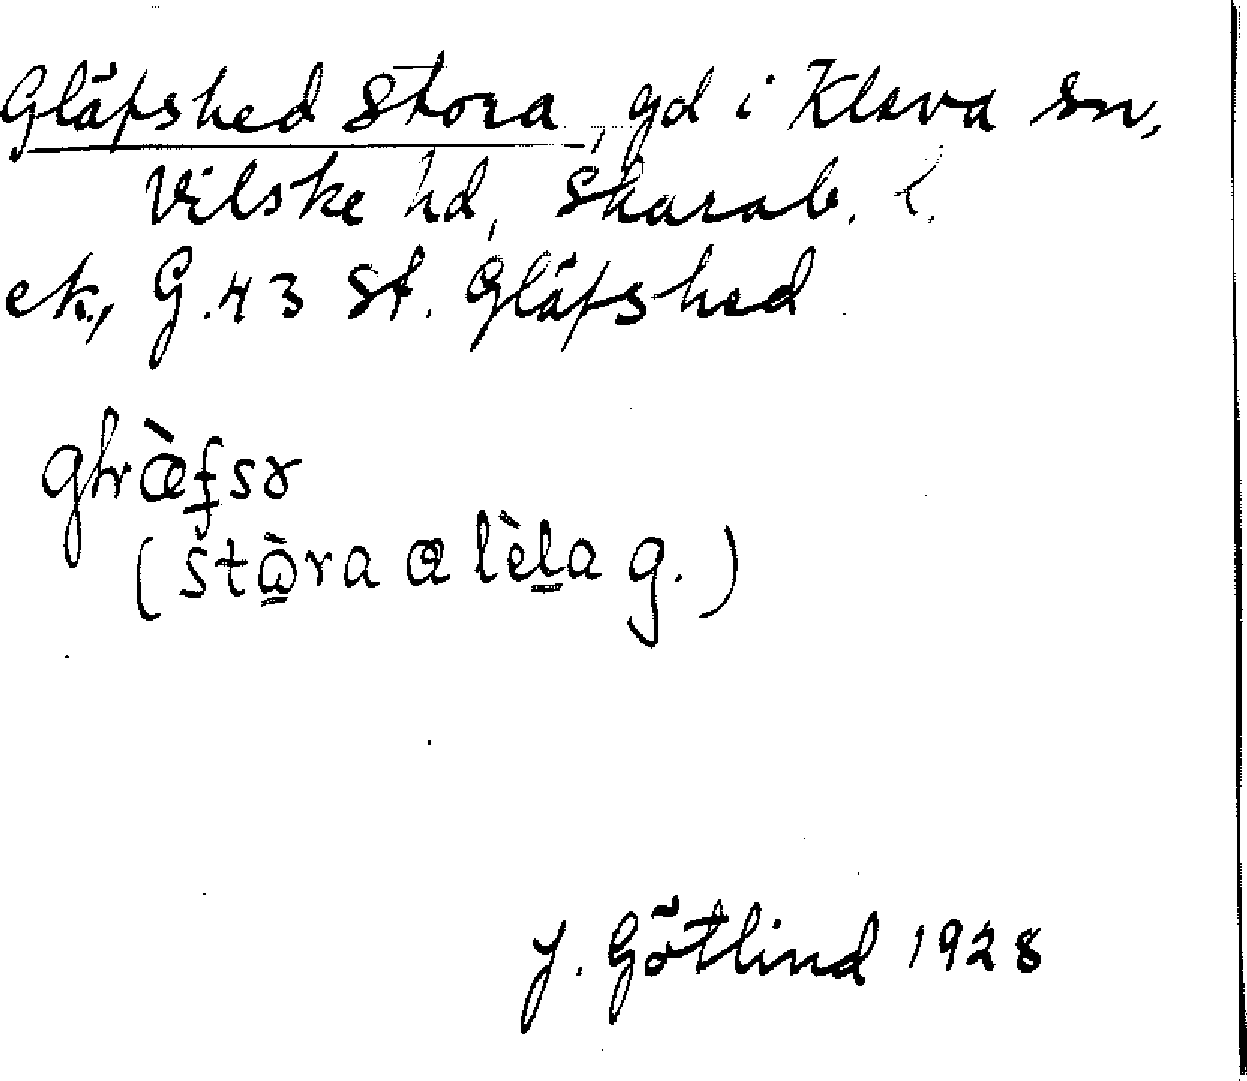 Gläfshed Stora, gd i Kleva sn,
Vilske hd, Skarab. l.
ek, G.43 St. Gläfshed
(stòra a lèla g.)
J. Götlind 1928